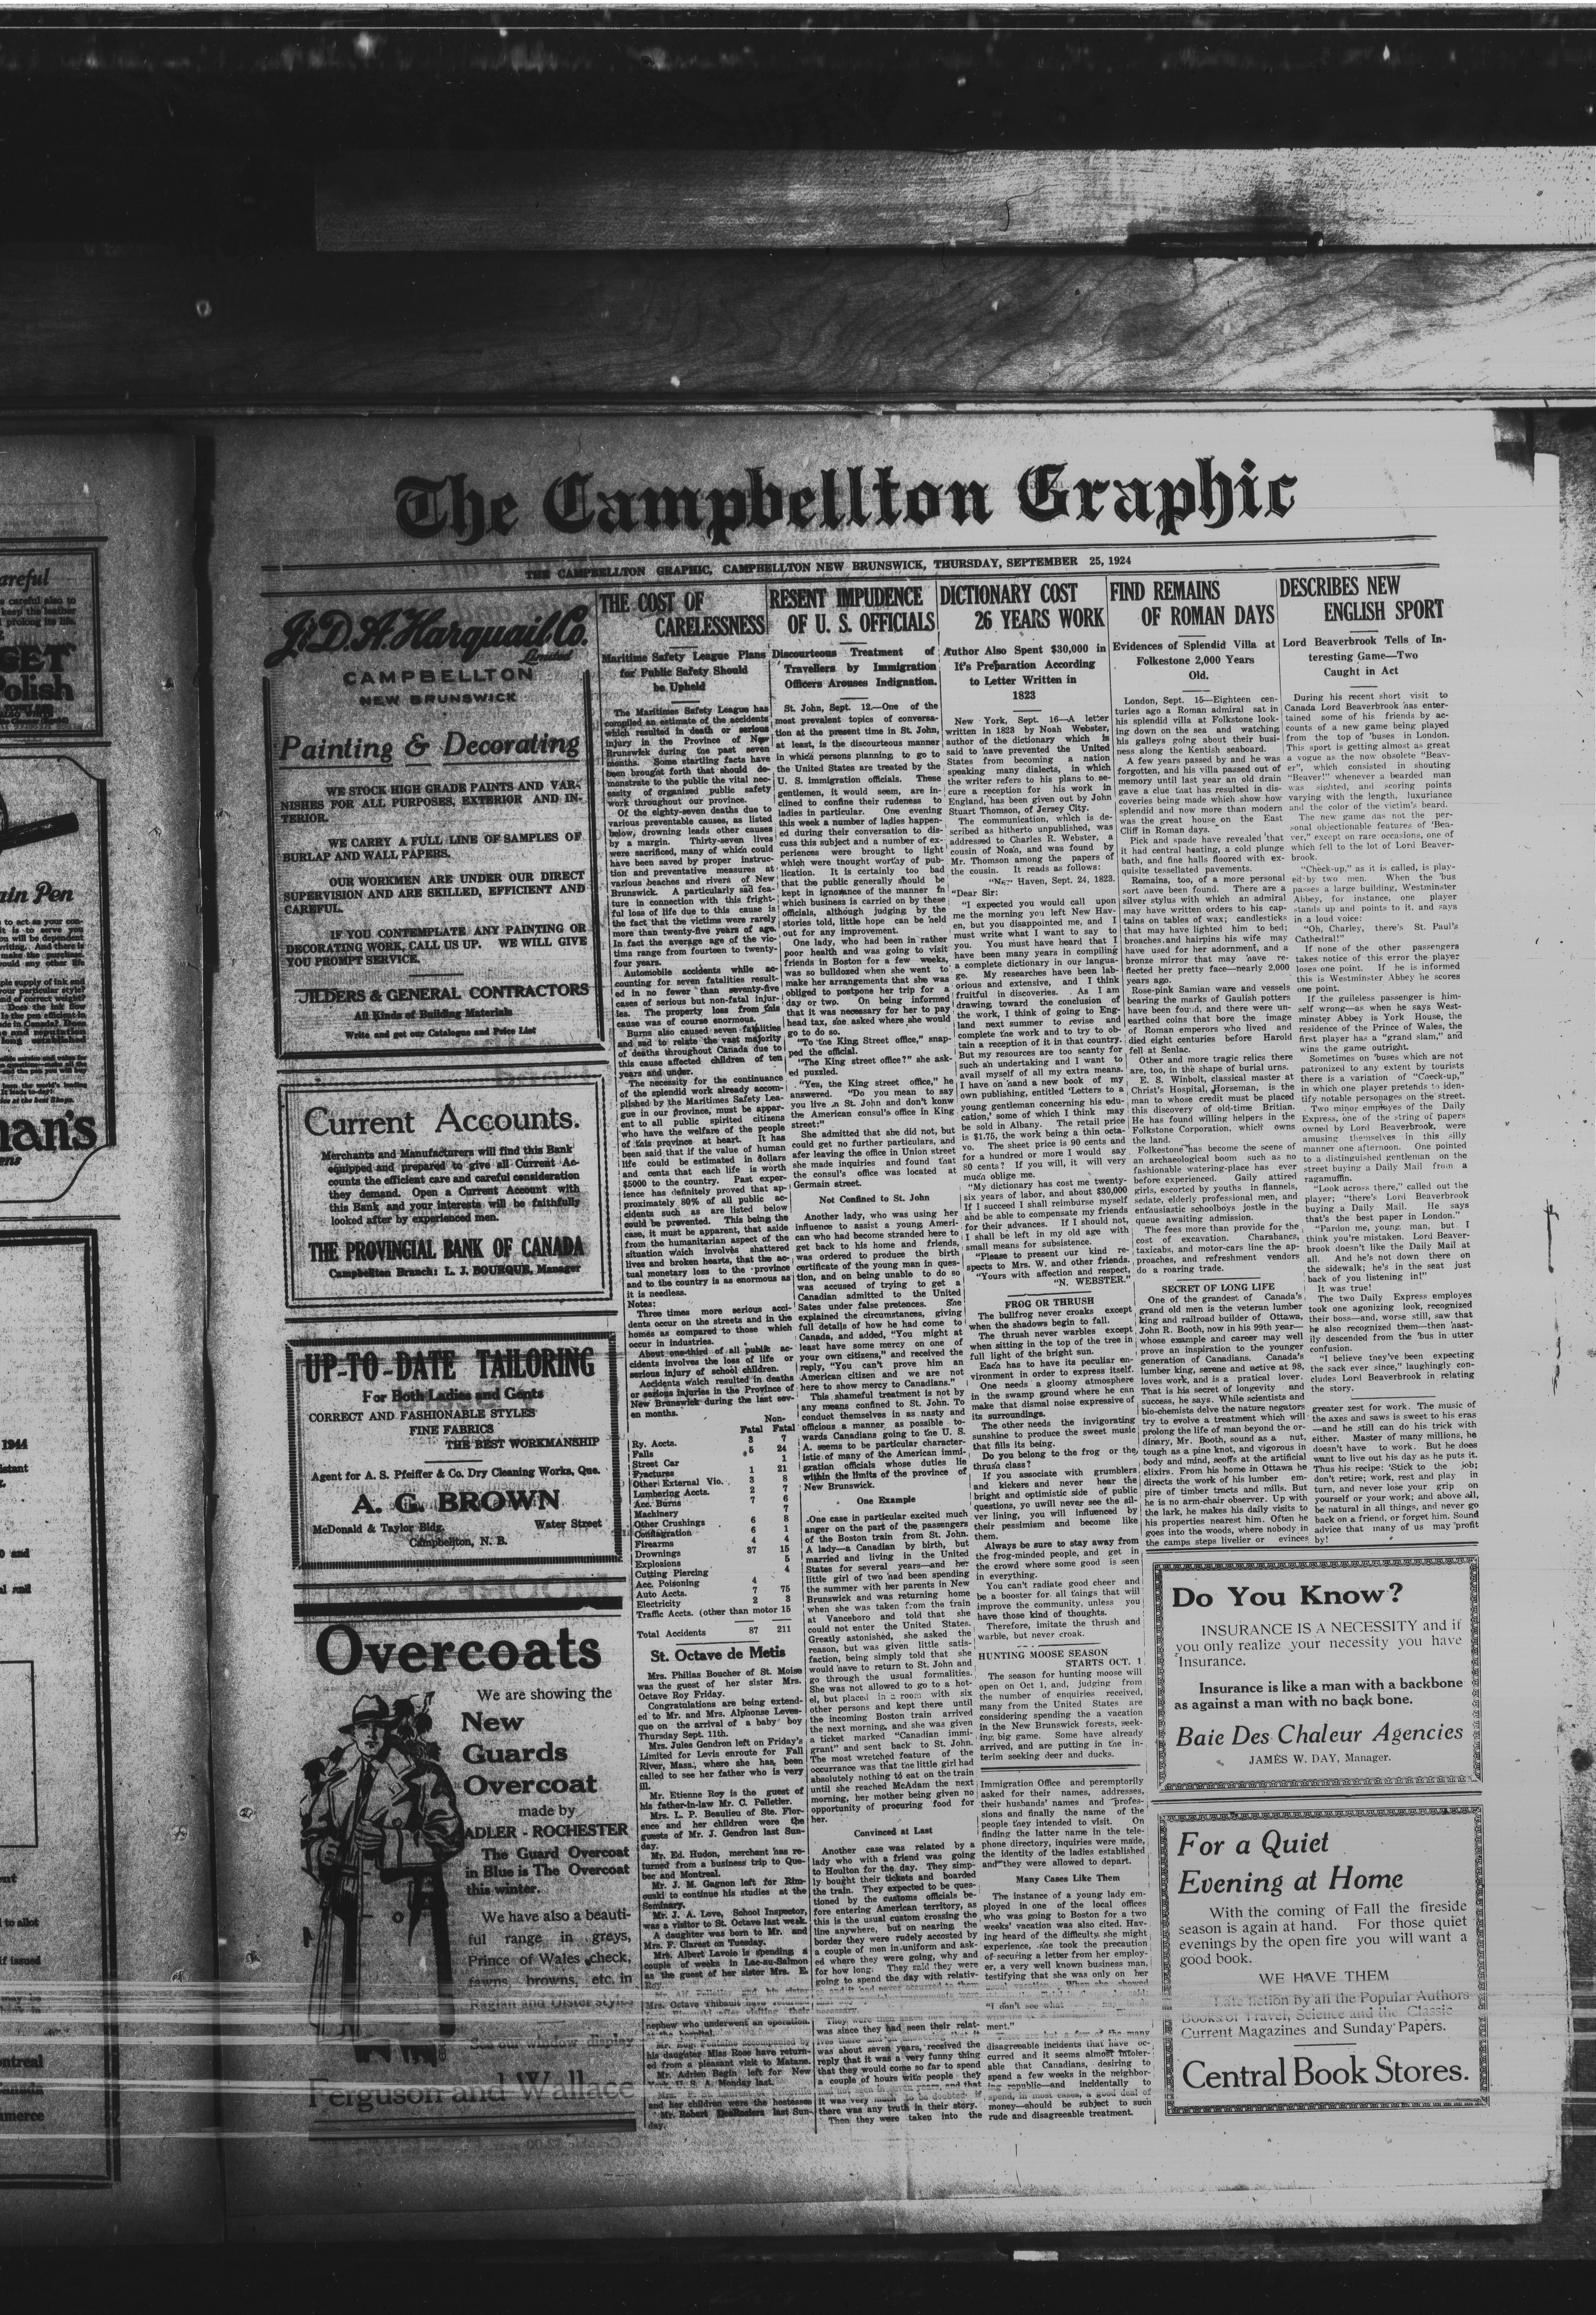 The Campbellton Graphic
THE CAMPBELLTON GRAPHIC, CAMPBELLTON NEW BRUNSWICK, THURSDAY, SEPTEMBER 25, 1924
J. D. A. Harquail Co.
Limited
CAMPBELLTON
NEW BRUNSWICK
Painting & Decorating
WE STOCK HIGH GRADE PAINTS AND VAR-
NISHES FOR ALL PURPOSES, EXTERIOR AND IN-
TERIOR.
WE CARRY A FULL LINE OF SAMPLES OF
BURLAP AND WALL PAPERS.
OUR WORKMEN ARE UNDER OUR DIRECT
SUPERVISION AND ARE SKILLED, EFFICIENT AND
CAREFUL.
IF YOU CONTEMPLATE ANY PAINTING OR
DECORATING WORK, CALL US UP. WE WILL GIVE
YOU PROMPT SERVICE.
JILDERS & GENERAL CONTRACTORS
All Kinds of Building Materials
Write and get our Catalogue and Price List
Current Accounts.
Merchants and Manufacturers will find this Bank
equipped and prepared to give all Current Ac-
counts the efficient care and careful consideration
they demand. Open a Current Account with
this Bank and your interests will be faithfully
looked after by experienced men.
THE PROVINCIAL BANK OF CANADA
Campbellton Branch: L. J. BOURQUE, Manager
UP-TO-DATE TAILORING
For Both Ladies and Gents
CORRECT AND FASHIONABLE STYLES
FINE FABRICS
THE BEST WORKMANSHIP
Agent for A. S. Pfeiffer & Co. Dry Cleaning Works, Que.
A. G. BROWN
McDonald & Taylor Bldg. Water Street
Campbellton, N. B.
Overcoats
We are showing the
New
Guards
Overcoat
made by
ADLER - ROCHESTER
The Guard Overcoat
in Blue is The Overcoat
this winter.
We have also a beauti-
ful range in greys,
Prince of Wales check,
fawns, browns, etc. in
Raglan and Ulster styles
See our window display
Ferguson and Wallace
THE COST OF
CARELESSNESS
Maritime Safety League Plans
for Public Safety Should
be Upheld
The Maritimes Safety League has
compiled an estimate of the accidents
which resulted in death or serious
injury in the Province of New
Brunswick during the past seven
months. Some startling facts have
been brought forth that should de-
monstrate to the public the vital nec-
essity of organized public safety
work throughout our province.
Of the eighty-seven deaths due to
various preventable causes, as listed
below, drowning leads other causes
by a margin. Thirty-seven lives
were sacrificed, many of which could
have been saved by proper instruc-
tion and preventative measures at
various beaches and rivers of New
Brunswick. A particularly sad fea-
ture in connection with this fright-
ful loss of life due to this cause is
the fact that the victims were rarely
more than twenty-five years of age.
In fact the average age of the vic-
tims range from fourteen to twenty-
four years.
Automobile accidents while ac-
counting for seven fatalities result-
ed in no fewer than seventy-five
cases of serious but non-fatal injur-
ies. The property loss from this
cause was of course enormous.
Burns also caused seven fatalities
and sad to relate the vast majority
of deaths throughout Canada due to
this cause affected children of ten
years and under.
The necessity for the continuance
of the splendid work already accom-
plished by the Maritimes Safety Lea-
gue in our province, must be appar-
ent to all public spirited citizens
who have the welfare of the people
of this province at heart. It has
been said that if the value of human
life could be estimated in dollars
and cents that each life is worth
$5000 to the country. Past exper-
ience has definitely proved that ap-
proximately 80% of all public ac-
cidents such as are listed below
could be prevented. This being the
case, it must be apparent, that aside
from the humanitarian aspect of the
situation which involves shattered
lives and broken hearts, that the ac-
tual monetary loss to the province
and to the country is as enormous as
it is needless.
Notes:
Three times more serious acci-
dents occur on the streets and in the
homes as compared to those which
occur in industries.
About one-third of all public ac-
cidents involves the loss of life or
serious injury of school children.
Accidents which resulted in deaths
or serious injuries in the Province of
New Brunswick during the last sev-
en months.
Non-
Fatal Fatal
Ry. Accts. 3 7
Falls 5 24
Street Car 1
Fractures 1 21
Other External Vio. 3 8
Lumbering Accts. 2 7
Acc. Burns 7 6
Machinery 7
Other Crushings 6 8
Conflagration 6 1
Firearms 4 4
Drownings 37 15
Explosions 5
Cutting Piercing 4
Acc. Poisoning 4
Auto Accts. 7 75
Electricity 2 3
Traffic Accts. (other than motor 15
Total Accidents 87 211
St. Octave de Metis
Mrs. Philias Boucher of St. Moise
was the guest of her sister Mrs.
Octave Roy Friday.
Congratulations are being extend-
ed to Mr. and Mrs. Alphonse Leves-
que on the arrival of a baby boy
Thursday Sept. 11th.
Mrs. Jules Gendron left on Friday's
Limited for Levis enroute for Fall
River, Mass., where she has been
called to see her father who is very
ill.
Mr. Etienne Roy is the guest of
his father-in-law Mr. C. Pelletier.
Mrs. L. P. Beaulieu of Ste. Flor-
ence and her children were the
guests of Mr. J. Gendron last Sun-
day.
Mr. Ed. Hudon, merchant has re-
turned from a business trip to Que-
bec and Montreal.
Mr. J. M. Gagnon left for Rim-
ouski to continue his studies at the
Seminary.
Mr. J. A. Love, School Inspector,
was a visitor to St. Octave last week.
A daughter was born to Mr. and
Mrs. F. Clarest on Tuesday.
Mrs. Albert Lavoie is spending a
couple of weeks in Lac-au-Salmon
as the guest of her sister Mrs. E.
Roy.
Mr. Alf. Pelletier and his sister
Mrs. Octave Thibault have returned
after visiting their
nephew who underwent an operation.
at the hospital.
Mr. Eug. Fontaine accompanied by
his daughter Miss Rose have return-
ed from a pleasant visit to Matane.
Mr. Adrien Begin left for New
York, U. S. A. Monday last.
and her children were the hostesses
Mr. Robert DesRosiers last Sun-
day.
RESENT IMPUDENCE
OF U. S. OFFICIALS
Discourteous Treatment of
Travellers by Immigration
Officers Arouses Indignation.
St. John, Sept. 12.—One of the
most prevalent topics of conversa-
tion at the present time in St. John,
at least, is the discourteous manner
in which persons planning to go to
the United States are treated by the
U. S. immigration officials. These
gentlemen, it would seem, are in-
clined to confine their rudeness to
ladies in particular. One evening
this week a number of ladies happen-
ed during their conversation to dis-
cuss this subject and a number of ex-
periences were brought to light
which were thought worthy of pub-
lication. It is certainly too bad
that the public generally should be
kept in ignorance of the manner in
which business is carried on by these
officials, although judging by the
stories told, little hope can be held
out for any improvement.
One lady, who had been in rather
poor health and was going to visit
friends in Boston for a few weeks,
was so bulldozed when she went to
make her arrangements that she was
obliged to postpone her trip for a
day or two. On being informed
that it was necessary for her to pay
head tax, she asked where she would
go to do so.
"To the King Street office," snap-
ped the official.
"The King street office?" she ask-
ed puzzled.
"Yes, the King street office," he
answered. "Do you mean to say
you live in St. John and don't konw
the American consul's office in King
street:"
She admitted that she did not, but
could get no further particulars, and
afer leaving the office in Union street
she made inquiries and found that
the consul's office was located at
Germain street.
Not Confined to St. John
Another lady, who was using her
influence to assist a young Ameri-
can who had become stranded here to
get back to his home and friends,
was ordered to produce the birth
certificate of the young man in ques-
tion, and on being unable to do so
was accused of trying to get a
Canadian admitted to the United
Sates under false pretences. She
explained the circumstances, giving
full details of how he had come to
Canada, and added, "You might at
least have some mercy on one of
your own citizens," and received the
reply, "You can't prove him an
American citizen and we are not
here to show mercy to Canadians."
This shameful treatment is not by
any means confined to St. John. To
conduct themselves in as nasty and
officious a manner as possible to-
wards Canadians going to the U. S.
A. seems to be particular character-
istic of many of the American immi-
gration officials whose duties lie
within the limits of the province of
New Brunswick.
One Example
One case in particular excited much
anger on the part of the passengers
of the Boston train from St. John.
A lady—a Canadian by birth, but
married and living in the United
States for several years—and her
little girl of two had been spending
the summer with her parents in New
Brunswick and was returning home
when she was taken from the train
at Vanceboro and told that she
could not enter the United States.
Greatly astonished, she asked the
reason, but was given little satis-
faction, being simply told that she
would have to return to St. John and
go through the usual formalities.
She was not allowed to go to a hot-
el, but placed in a room with six
other persons and kept there until
the incoming Boston train arrived
the next morning, and she was given
a ticket marked "Canadian immi-
grant" and sent back to St. John.
The most wretched feature of the
occurrence was that the little girl had
absolutely nothing to eat on the train
until she reached McAdam the next
morning, her mother being given no
opportunity of procuring food for
her.
Convinced at Last
Another case was related by a
lady who with a friend was going
to Houlton for the day. They simp-
ly bought their tickets and boarded
the train. They expected to be ques-
tioned by the customs officials be-
fore entering American territory, as
this is the usual custom crossing the
line anywhere, but on nearing the
border they were rudely accosted by
a couple of men in uniform and ask-
ed where they were going, why and
for how long. They said they were
going to spend the day with relativ-
es and it had never occurred to them
necessary.
They were then asked how
was since they had seen their relat-
ives there and on answering that it
was about seven years, received the
reply that it was a very funny thing
that they would come so far to spend
a couple of hours with people they
had not seen in seven years, and that
it was very much to be doubted if
there was any truth in their story.
Then they were taken into the
DICTIONARY COST
26 YEARS WORK
Author Also Spent $30,000 in
It's Preparation According
to Letter Written in
1823
New York, Sept. 16—A letter
written in 1823 by Noah Webster,
author of the dictionary which is
said to have prevented the United
States from becoming a nation
speaking many dialects, in which
the writer refers to his plans to se-
cure a reception for his work in
England, has been given out by John
Stuart Thomson, of Jersey City.
The communication, which is de-
scribed as hitherto unpublished, was
addressed to Charles R. Webster, a
cousin of Noah, and was found by
Mr. Thomson among the papers of
the cousin. It reads as follows:
"New Haven, Sept. 24, 1823.
"Dear Sir:
"I expected you would call upon
me the morning you left New Hav-
en, but you disappointed me, and I
must write what I want to say to
you. You must have heard that I
have been many years in compiling
a complete dictionary in our langua-
ge. My researches have been lab-
orious and extensive, and I think
fruitful in discoveries. As I am
drawing toward the conclusion of
the work, I think of going to Eng-
land next summer to revise and
complete the work and to try to ob-
tain a reception of it in that country.
But my resources are too scanty for
such an undertaking and I want to
avail myself of all my extra means.
I have on hand a new book of my
own publishing, entitled 'Letters to a
young gentleman concerning his edu-
cation,' some of which I think may
be sold in Albany. The retail price
is $1.75, the work being a thin octa-
vo. The sheet price is 90 cents and
for a hundred or more I would say
80 cents? If you will, it will very
much oblige me.
"My dictionary has cost me twenty-
six years of labor, and about $30,000
If I succeed I shall reimburse myself
and be able to compensate my friends
for their advances. If I should not,
I shall be left in my old age with
small means for subsistence.
"Please to present our kind re-
spects to Mrs. W. and other friends.
"Yours with affection and respect,
"N. WEBSTER."
FROG OR THRUSH
The bullfrog never croaks except
when the shadows begin to fall.
The thrush never warbles except
when sitting in the top of the tree in
full light of the bright sun.
Each has to have its peculiar en-
vironment in order to express itself.
One needs a gloomy atmosphere
in the swamp ground where he can
make that dismal noise expressive of
its surroundings.
The other needs the invigorating
sunshine to produce the sweet music
that fills its being.
Do you belong to the frog or the
thrush class?
If you associate with grumblers
and kickers and never hear the
bright and optimistic side of public
questions, yo uwill never see the sil-
ver lining, you will influenced by
their pessimism and become like
them.
Always be sure to stay away from
the frog-minded people, and get in
the crowd where some good is seen
in everything.
You can't radiate good cheer and
be a booster for all things that will
improve the community, unless you
have those kind of thoughts.
Therefore, imitate the thrush and
warble, but never croak.
HUNTING MOOSE SEASON
STARTS OCT. 1
The season for hunting moose will
open on Oct 1, and, judging from
the number of enquiries received,
many from the United States are
considering spending the a vacation
in the New Brunswick forests, seek-
ing big game. Some have already
arrived, and are putting in the in-
terim seeking deer and ducks.
Immigration Office and peremptorily
asked for their names, addresses,
their husbands' names and profes-
sions and finally the name of the
people they intended to visit. On
finding the latter name in the tele-
phone directory, inquiries were made,
the identity of the ladies established
and they were allowed to depart.
Many Cases Like Them
The instance of a young lady em-
ployed in one of the local offices
who was going to Boston for a two
weeks' vacation was also cited. Hav-
ing heard of the difficulty she might
experience, she took the precaution
of securing a letter from her employ-
er, a very well known business man,
testifying that she was only on her
usual vacation. When she showed
"I don't see what
ment."
These are but a few of the many
disagreeable incidents that have oc-
curred and it seems almost intoler-
able that Canadians, desiring to
spend a few weeks in the neighbor-
ing republic—and incidentally to
spend, in most cases, a good deal of
money—should be subject to such
rude and disagreeable treatment.
FIND REMAINS
OF ROMAN DAYS
Evidences of Splendid Villa at
Folkestone 2,000 Years
Old.
London, Sept. 15—Eighteen cen-
turies ago a Roman admiral sat in
his splendid villa at Folkstone look-
ing down on the sea and watching
his galleys going about their busi-
ness along the Kentish seaboard.
A few years passed by and he was
forgotten, and his villa passed out of
memory until last year an old drain
gave a clue that has resulted in dis-
coveries being made which show how
splendid and now more than modern
was the great house on the East
Cliff in Roman days.
Pick and spade have revealed that
it had central heating, a cold plunge
bath, and fine halls floored with ex-
quisite tessellated pavements.
Remains, too, of a more personal
sort have been found. There are a
silver stylus with which an admiral
may have written orders to his cap-
tains on tables of wax; candlesticks
that may have lighted him to bed;
broaches and hairpins his wife may
have used for her adornment, and a
bronze mirror that may have re-
flected her pretty face—nearly 2,000
years ago.
Rose-pink Samian ware and vessels
bearing the marks of Gaulish potters
have been found, and there were un-
earthed coins that bore the image
of Roman emperors who lived and
died eight centuries before Harold
fell at Senlac.
Other and more tragic relics there
are, too, in the shape of burial urns.
E. S. Winbolt, classical master at
Christ's Hospital, Horseman, is the
man to whose credit must be placed
this discovery of old-time Britian.
He has found willing helpers in the
Folkstone Corporation, which owns
the land.
Folkestone has become the scene of
an archaeological boom such as no
fashionable watering-place has ever
before experienced. Gaily attired
girls, escorted by youths in flannels,
sedate, elderly professional men, and
entausiastic schoolboys jostle in the
queue awaiting admission.
The fees more than provide for the
cost of excavation. Charabancs,
taxicabs, and motor-cars line the ap-
proaches, and refreshment vendors
do a roaring trade.
SECRET OF LONG LIFE
One of the grandest of Canada's
grand old men is the veteran lumber
king and railroad builder of Ottawa,
John R. Booth, now in his 99th year—
whose example and career may well
prove an inspiration to the younger
generation of Canadians. Canada's
lumber king, serene and active at 98,
loves work, and is a pratical lover.
That is his secret of longevity and
success, he says. While scientists and
bio-chemists delve the nature negators
try to evolve a treatment which will
prolong the life of man beyond the or-
dinary, Mr. Booth, sound as a nut,
tough as a pine knot, and vigorous in
body and mind, scoffs at the artificial
elixirs. From his home in Ottawa he
directs the work of his lumber em-
pire of timber tracts and mills. But
he is no arm-chair observer. Up with
the lark, he makes his daily visits to
his properties nearest him. Often he
goes into the woods, where nobody in
the camps steps livelier or evinces
DESCRIBES NEW
ENGLISH SPORT
Lord Beaverbrook Tells of In-
teresting Game—Two
Caught in Act
During his recent short visit to
Canada Lord Beaverbrook has enter-
tained some of his friends by ac-
counts of a new game being played
from the top of 'buses in London.
This sport is getting almost as great
a vogue as the now obsolete "Beav-
er", which consisted in shouting
"Beaver!" whenever a bearded man
was sighted, and scoring points
varying with the length, luxuriance
and the color of the victim's beard.
The new game has not the per-
sonal objectionable features of 'Bea-
ver," except on rare occasions, one of
which fell to the lot of Lord Beaver-
brook.
"Check-up," as it is called, is play-
ed by two men. When the 'bus
passes a large building, Westminster
Abbey, for instance, one player
stands up and points to it, and says
in a loud voice:
"Oh, Charley, there's St. Paul's
Cathedral!"
If none of the other passengers
takes notice of this error the player
loses one point. If he is informed
this is Westminster Abbey he scores
one point.
If the guileless passenger is him-
self wrong—as when he says West-
minster Abbey is York House, the
residence of the Prince of Wales, the
first player has a "grand slam," and
wins the game outright.
Sometimes on 'buses which are not
patronized to any extent by tourists
there is a variation of "Coeck-up,"
in which one player pretends to iden-
tify notable personages on the street.
Two minor employes of the Daily
Express, one of the string of papers
owned by Lord Beaverbrook, were
amusing themselves in this silly
manner one afternoon. One pointed
to a distinguished gentleman on the
street buying a Daily Mail from a
ragamuffin.
"Look across there," called out the
player; "there's Lord Beaverbrook
buying a Daily Mail. He says
that's the best paper in London."
"Pardon me, young man, but I
think you're mistaken. Lord Beaver-
brook doesn't like the Daily Mail at
all. And he's not down there on
the sidewalk; he's in the seat just
back of you listening in!"
It was true!
The two Daily Express employes
took one agonizing look, recognized
their boss—and, worse still, saw that
he also recognized them—then hast-
ily descended from the 'bus in utter
confusion.
"I believe they've been expecting
the sack ever since," laughingly con-
cludes Lord Beaverbrook in relating
the story.
greater zest for work. The music of
the axes and saws is sweet to his eras
—and he still can do his trick with
either. Master of many millions, he
doesn't have to work. But he does
want to live out his day as he puts it.
Thus his recipe: 'Stick to the job;
don't retire; work, rest and play in
turn, and never lose your grip on
yourself or your work; and above all,
be natural in all things, and never go
back on a friend, or forget him. Sound
advice that many of us may profit
by!
Do You Know?
INSURANCE IS A NECESSITY and if
you only realize your necessity you have
Insurance.
Insurance is like a man with a backbone
as against a man with no back bone.
Baie Des Chaleur Agencies
JAMES W. DAY, Manager.
For a Quiet
Evening at Home
With the coming of Fall the fireside
season is again at hand. For those quiet
evenings by the open fire you will want a
good book.
WE HAVE THEM
Late fiction by all the Popular Authors
Books of Travel, Science and the Classic
Current Magazines and Sunday Papers.
Central Book Stores.